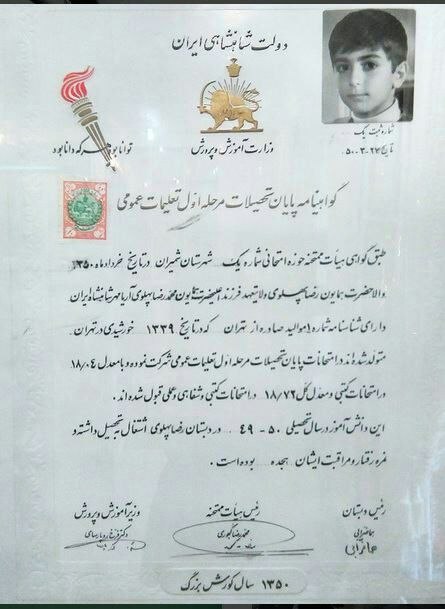 دولت شاهنشاهی ایران
توانا بود هر که دانا بود
وزارت آموزش و پرورش
شماره ثبت یک
تاریخ ۲۷-۳-۵۰
گواهینامه پایان تحصیلات مرحله اول تعلیمات عمومی
طبق گواهی هیأت ممتحنه حوزه امتحانی شماره یک شهرستان شمیران در تاریخ خرداد ماه ۱۳۵۰
والاحضرت همایون رضا پهلوی ولایتعهد فرزند اعلیحضرت همایون محمدرضا پهلوی آریامهر شاهنشاه ایران
دارای شناسنامه شماره ۱ موالید صادره از تهران که در تاریخ ۱۳۳۹ خورشیدی در تهران
متولد شده اند در امتحانات پایان تحصیلات مرحله اول تعلیمات عمومی شرکت نموده و با معدل ۱۸/۰۴
در امتحانات کتبی و معدل کل ۱۸/۷۲ در امتحانات کتبی و شفاهی و عملی قبول شده اند.
این دانش آموز در سال تحصیلی ۵۰ - ۴۹ در دبستان رضا پهلوی اشتغال به تحصیل داشته و
نمره رفتار و مراقبت ایشان هجده بوده است.
رئیس دبستان
رئیس هیأت ممتحنه
وزیر آموزش و پرورش
محمدرضا گبوری
دکتر فرخ رو پارسای
۱۳۵۰ سال کوروش بزرگ